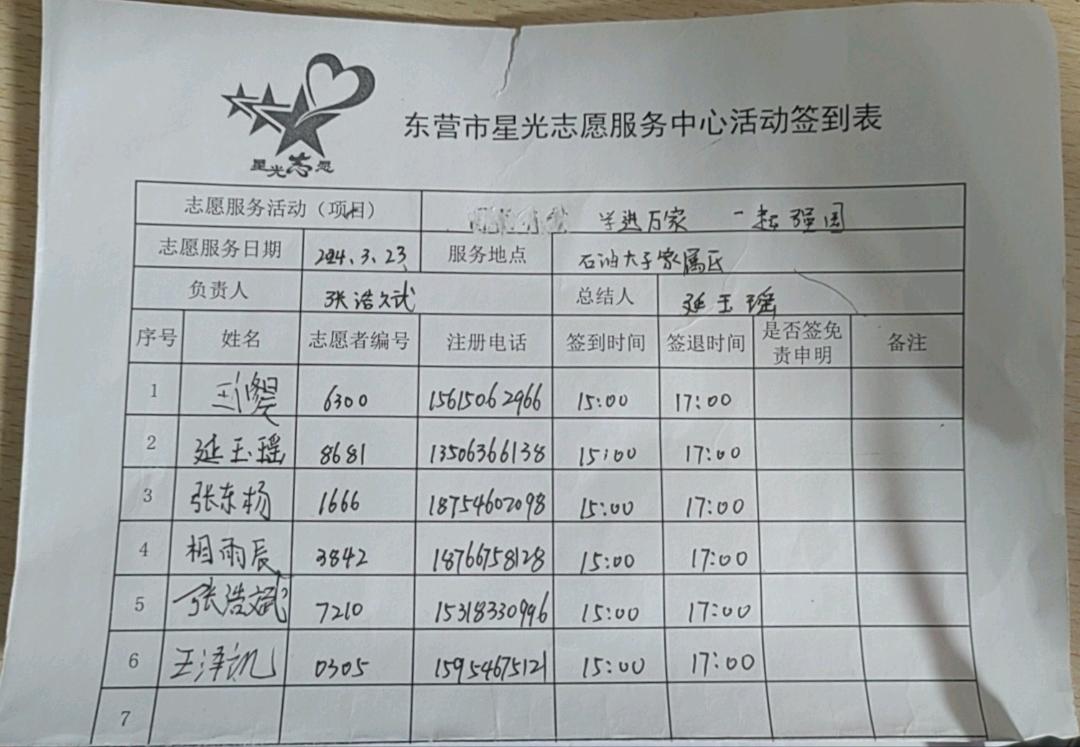 星光志愿
东营市星光志愿服务中心活动签到表
志愿服务活动（项目） 学进万家 一起强国
志愿服务日期 2024.3.23 服务地点 石油大学家属区
负责人 张浩斌 总结人 延玉瑶
序号 姓名 志愿者编号 注册电话 签到时间 签退时间 是否签免责申明 备注
1 6300 15615062966 15:00 17:00
2 延玉瑶 8681 13506366138 15:00 17:00
3 张东杨 1666 18754602098 15:00 17:00
4 相雨辰 3842 18766758128 15:00 17:00
5 张浩斌 7210 15318330996 15:00 17:00
6 王泽凯 0305 15954675121 15:00 17:00
7